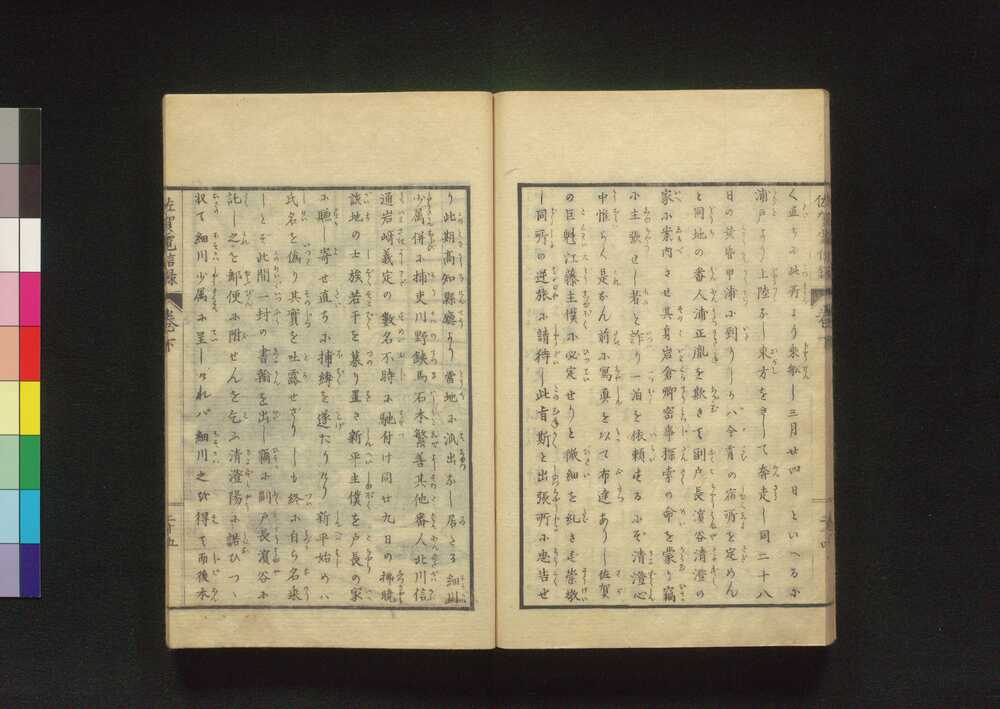 く直ちに此所より乗船し三月廿四日といへるに
浦戸より上陸なし東方をさして奔走し同二十八
日の黄昏甲浦に到りしハ今宵の宿所を定めん
と同地の番人浦正胤を欺きて副戸長濵谷清澄の
家に案内させ其身岩倉卿密事探索の命を蒙り竊
に主張せし者と詐り一泊を依頼せるにぞ清澄心
中惟らく是なん前に寫真を以て布達ありし佐賀
の巨魁江藤主僕に必定せりと微細を糺さず崇敬
し同所の逆旅に請待し此旨斯と出張所に忠告せ
り此期高知縣廳より當地に派出なし居たる細川
少属併に捕吏川野鉄馬石本繁善其他番人北川信
通岩﨑義定の數名不時に馳付け同廿九日の拂暁
該地の士族若干を募り置き新平主僕を戸長の家
に聴し寄せ直ちに捕縛を遂たりけり新平始めハ
氏名を偽り其實を吐露せざりしも終に自ら名乗
しとぞ此間一封の書翰を出し爾に副戸長濵谷に
託し之を郵便に附せんを乞ふ清澄陽に諾ひつゝ
収て細川少属に呈しけれバ細川之を得て而後本
佐賀電信録
巻下
二十五